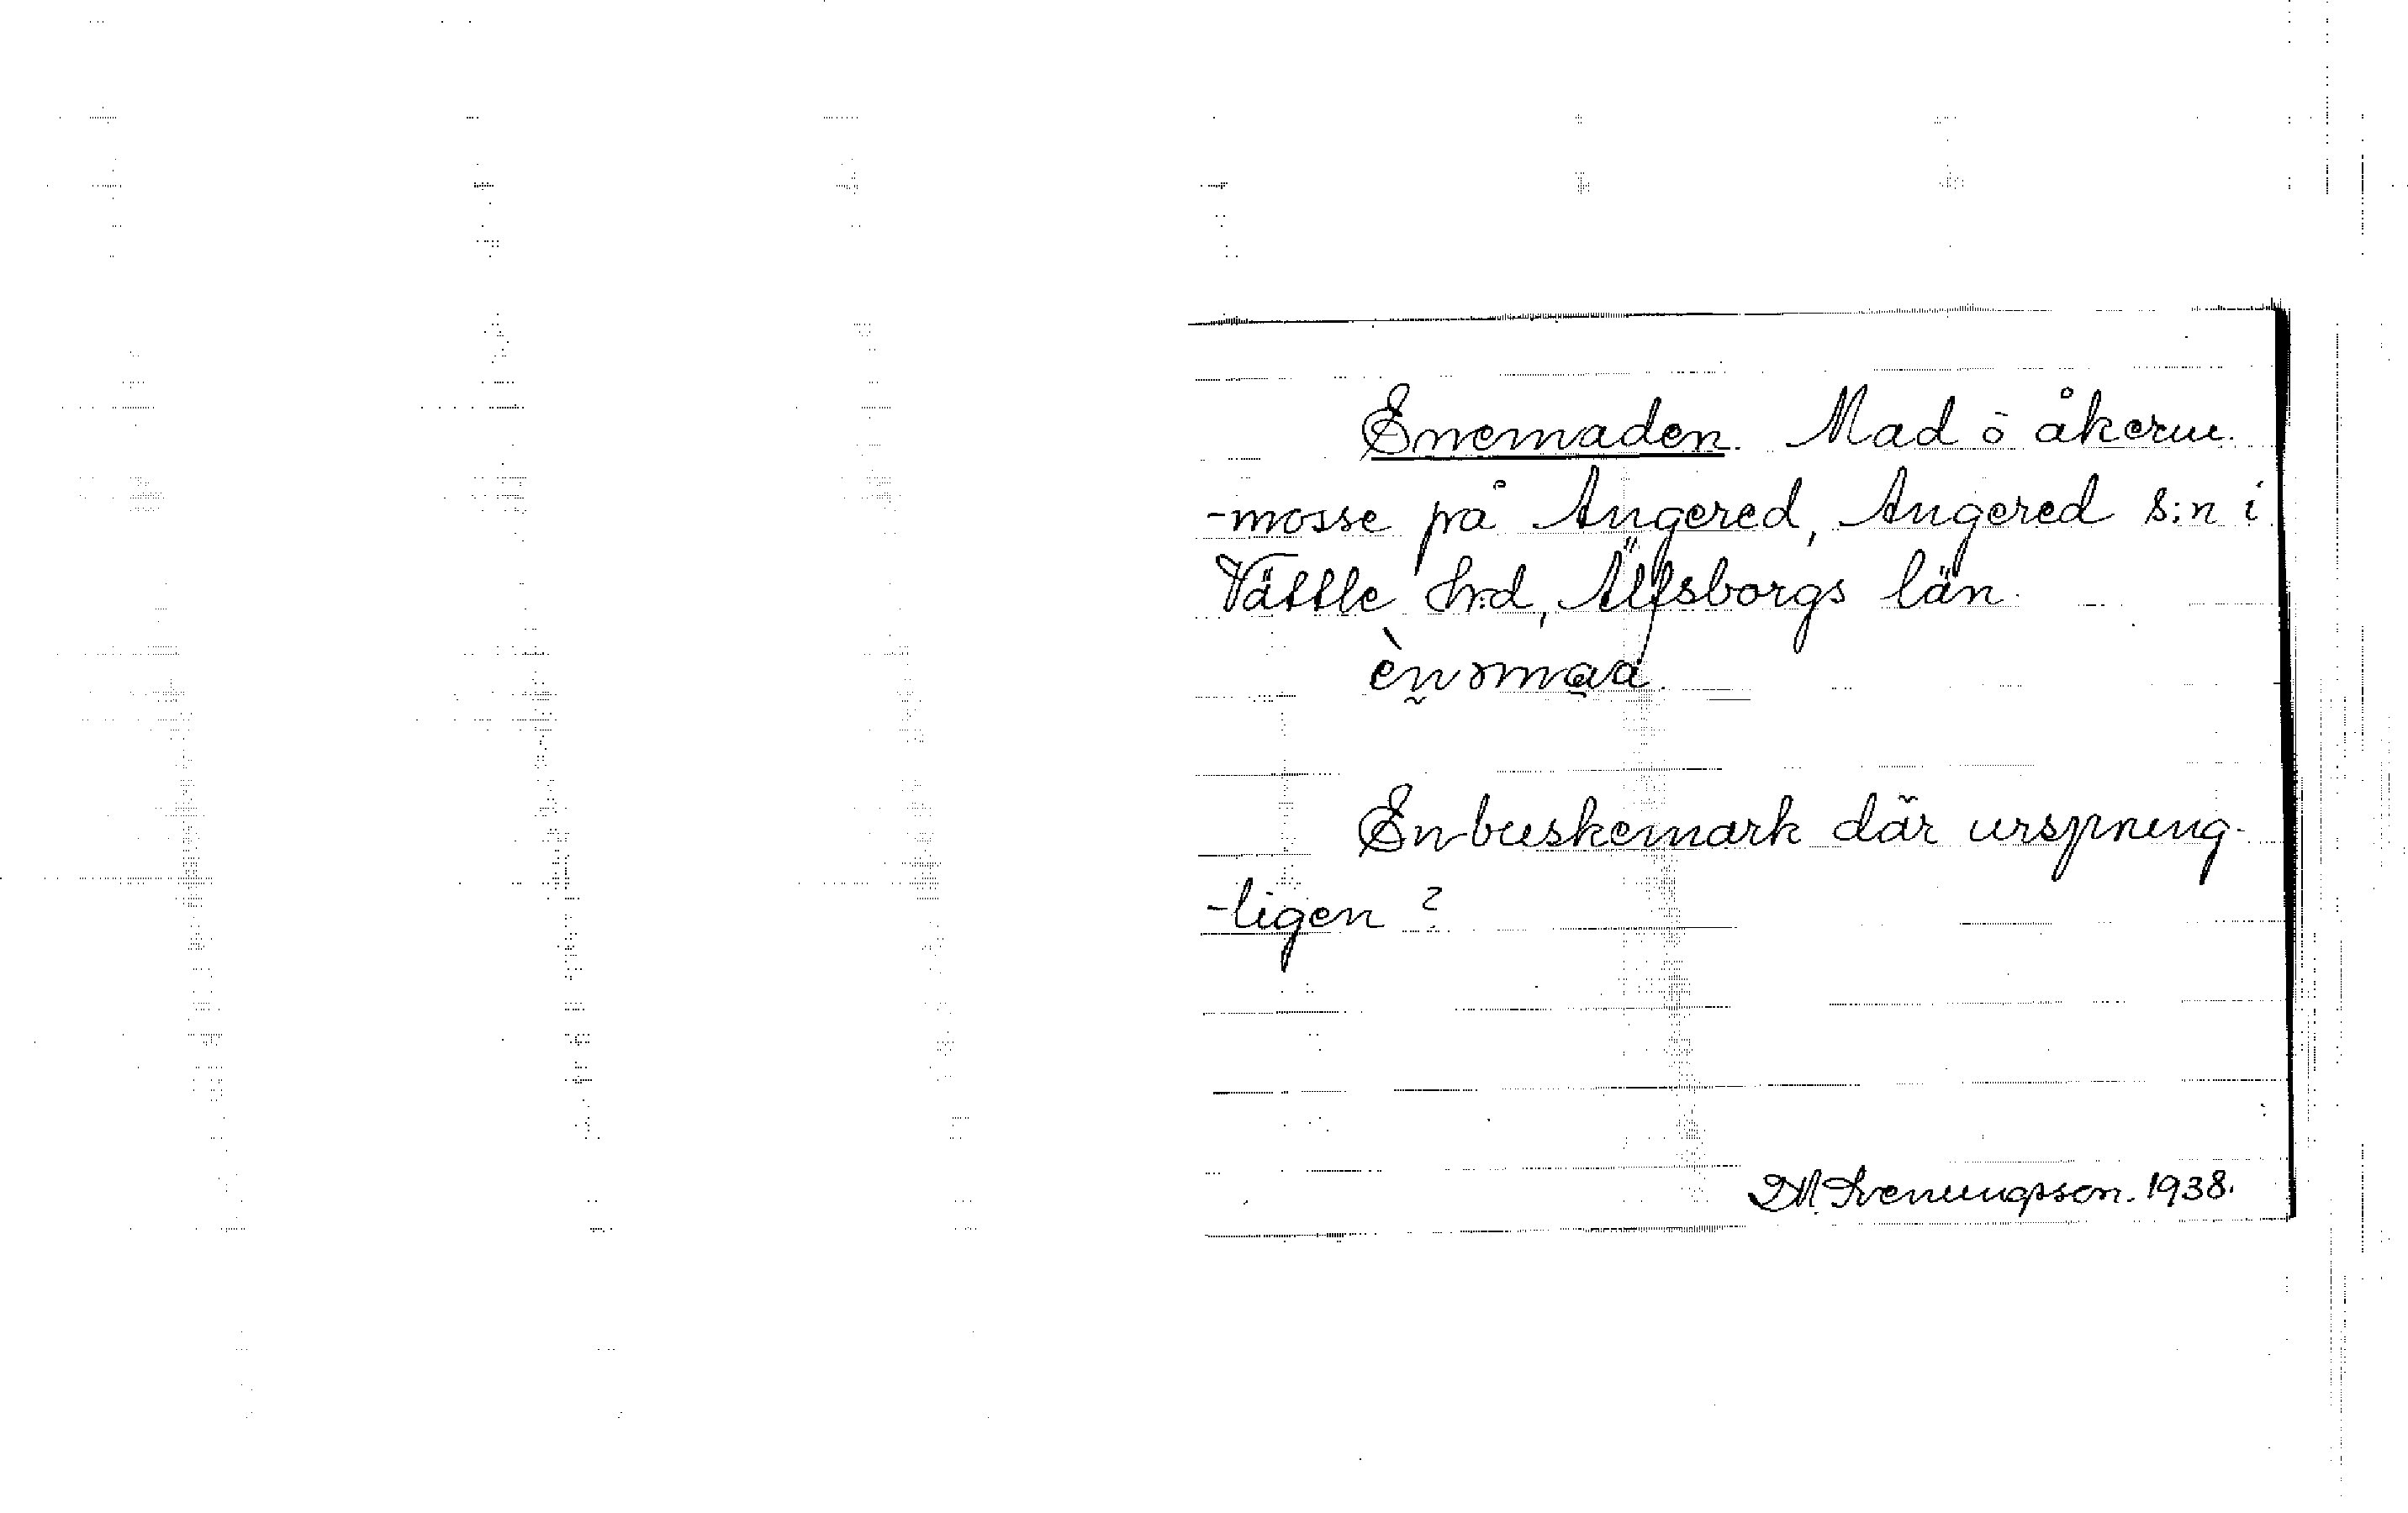 Enemaden. Mad ō åkerm.
-mosse på Angered, Angered s:n i
Vättle h:d, Älfsborgs län.
Enbuskemark där ursprung-
-ligen?
D.M. Svenungsson. 1938.